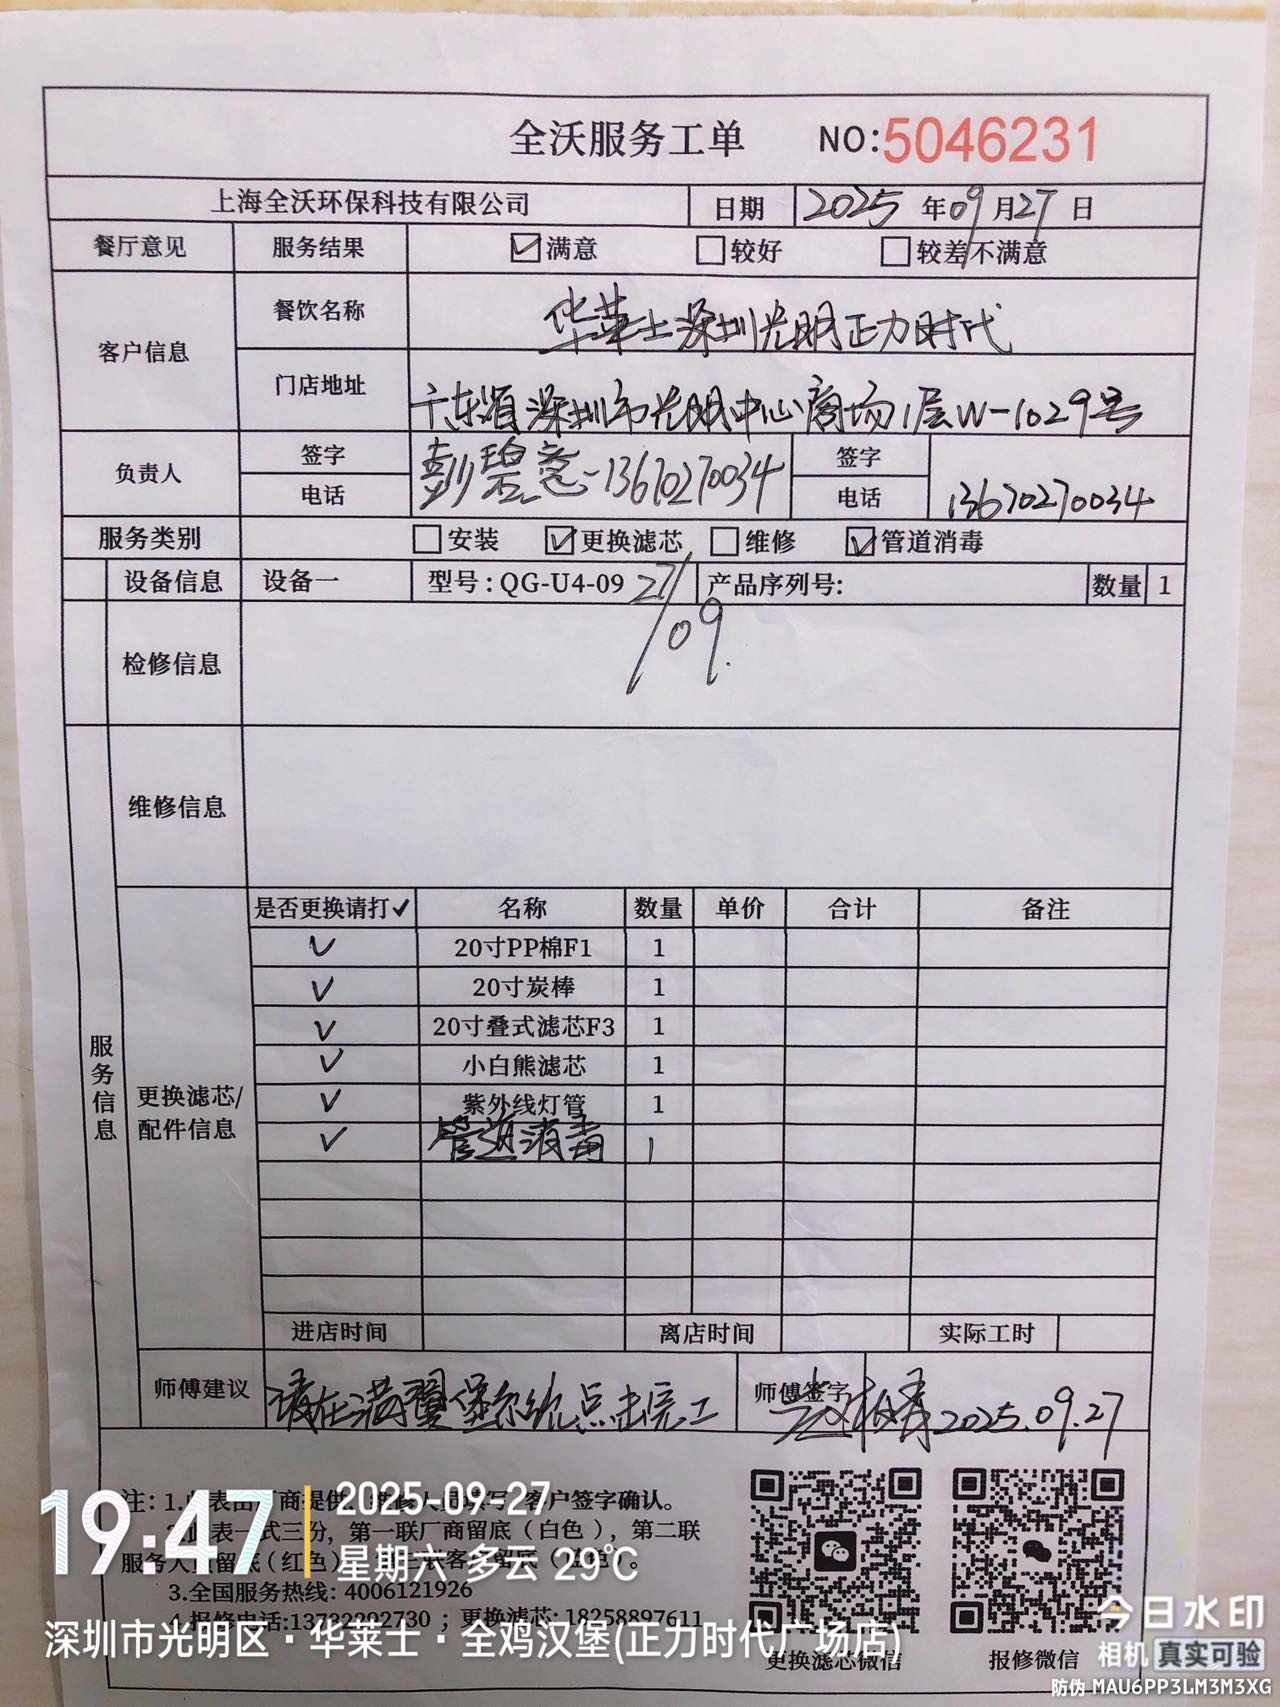 全沃服务工单 NO:5046231
上海全沃环保科技有限公司 日期 2025 年 09 月 27 日
餐厅意见 服务结果 ☑满意 □较好 □较差不满意
客户信息 餐饮名称 华莱士深圳光明正力时代
门店地址 广东省深圳市光明中心商场1层W-1029号
负责人 签字 彭碧意-13670270034 签字
电话 电话 13670270034
服务类别 □安装 ☑更换滤芯 □维修 ☑管道消毒
设备信息 设备一 型号:QG-U4-09 产品序列号: 数量 1
27/09.
检修信息
维修信息
服务信息
更换滤芯/配件信息
是否更换请打✓ 名称 数量 单价 合计 备注
✓ 20寸PP棉F1 1
✓ 20寸炭棒 1
✓ 20寸叠式滤芯F3 1
✓ 小白熊滤芯 1
✓ 紫外线灯管 1
✓ 管道消毒 1
进店时间 离店时间 实际工时
师傅建议 请在满翼堡系统点击完工 师傅签字 2025.09.27
注: 1.此表由厂商提供 维修人员填写 客户签字确认。
此表一式三份, 第一联厂商留底(白色), 第二联
服务人员留底(红色) 客 留底
3.全国服务热线: 4006121926
4.报修电话:13732292730 ; 更换滤芯: 18258897611
更换滤芯微信 报修微信
19:47
2025-09-27
星期六 多云 29℃
深圳市光明区·华莱士·全鸡汉堡(正力时代广场店)
今日水印
相机 真实可验
防伪 MAU6PP3LM3M3XG